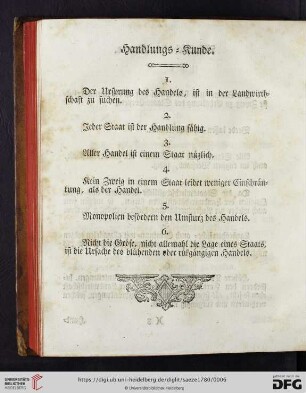 Handlungs-Kunde.
1.
Der Ursprung des Handels, ist in der Landwirth-
schaft zu suchen.
2.
Jeder Staat ist der Handlung fähig.
3.
Aller Handel ist einem Staat nüzlich.
4.
Kein Zweig in einem Staat leidet weniger Einschrän-
kung, als der Handel.
5.
Monopolien befördern den Umsturz des Handels.
6.
Nicht die Gröse, nicht allemahl die Lage eines Staats,
ist die Ursache des blühenden oder rükgängigen Handels.
UNIVERSITÄTS-
BIBLIOTHEK
HEIDELBERG
http://digi.ub.uni-heidelberg.de/diglit/saeze1780/0006
© Universitätsbibliothek Heidelberg
gefördert durch die
DFG